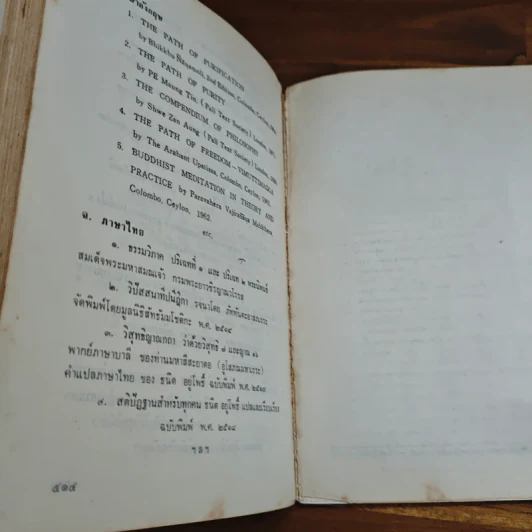 1. THE PATH OF PURIFICATION
by Bhikkhu Ñāṇamoli, 2nd Edition, Colombo, Ceylon,
2. THE PATH OF PURITY
by PE Maung Tin, (Pali Text Society) London,
3. THE COMPENDIUM OF PHILOSOPHY
by Shwe Zan Aung (Pali Text Society) London,
4. THE PATH OF FREEDOM – VIMUTTIMAGGA
by The Arahant Upatissa, Colombo, Ceylon,
5. BUDDHIST MEDITATION IN THEORY AND
PRACTICE by Paravahera Vajirañāṇa Mahāthera
Colombo, Ceylon, 1962.
etc.
๑. ภาษาไทย
๑. ธรรมวิภาค ปริเฉทที่ ๑ และ ปริเฉท ๒ พระนิพนธ์
สมเด็จพระมหาสมณเจ้า กรมพระยาวชิรญาณวโรรส
๒. วิปัสสนาทีปนีฎีกา รจนาโดย ภัททันตะ
จัดพิมพ์โดยมูลนิธิ พ.ศ.
๓. วิสุทธิญาณกถา ว่าด้วยวิสุทธิ ๗ และญาณ ๑๖
พากย์ภาษาบาลี ของท่านมหาสีสะยาดอ (อุโสภณมหาเถระ)
คำแปลภาษาไทย ของ ธนิต อยู่โพธิ์ ฉบับพิมพ์ พ.ศ.
๔. สติปัฏฐานสำหรับทุกคน ธนิต อยู่โพธิ์ แปลและเรียบเรียง
ฉบับพิมพ์ พ.ศ.
ฯลฯ